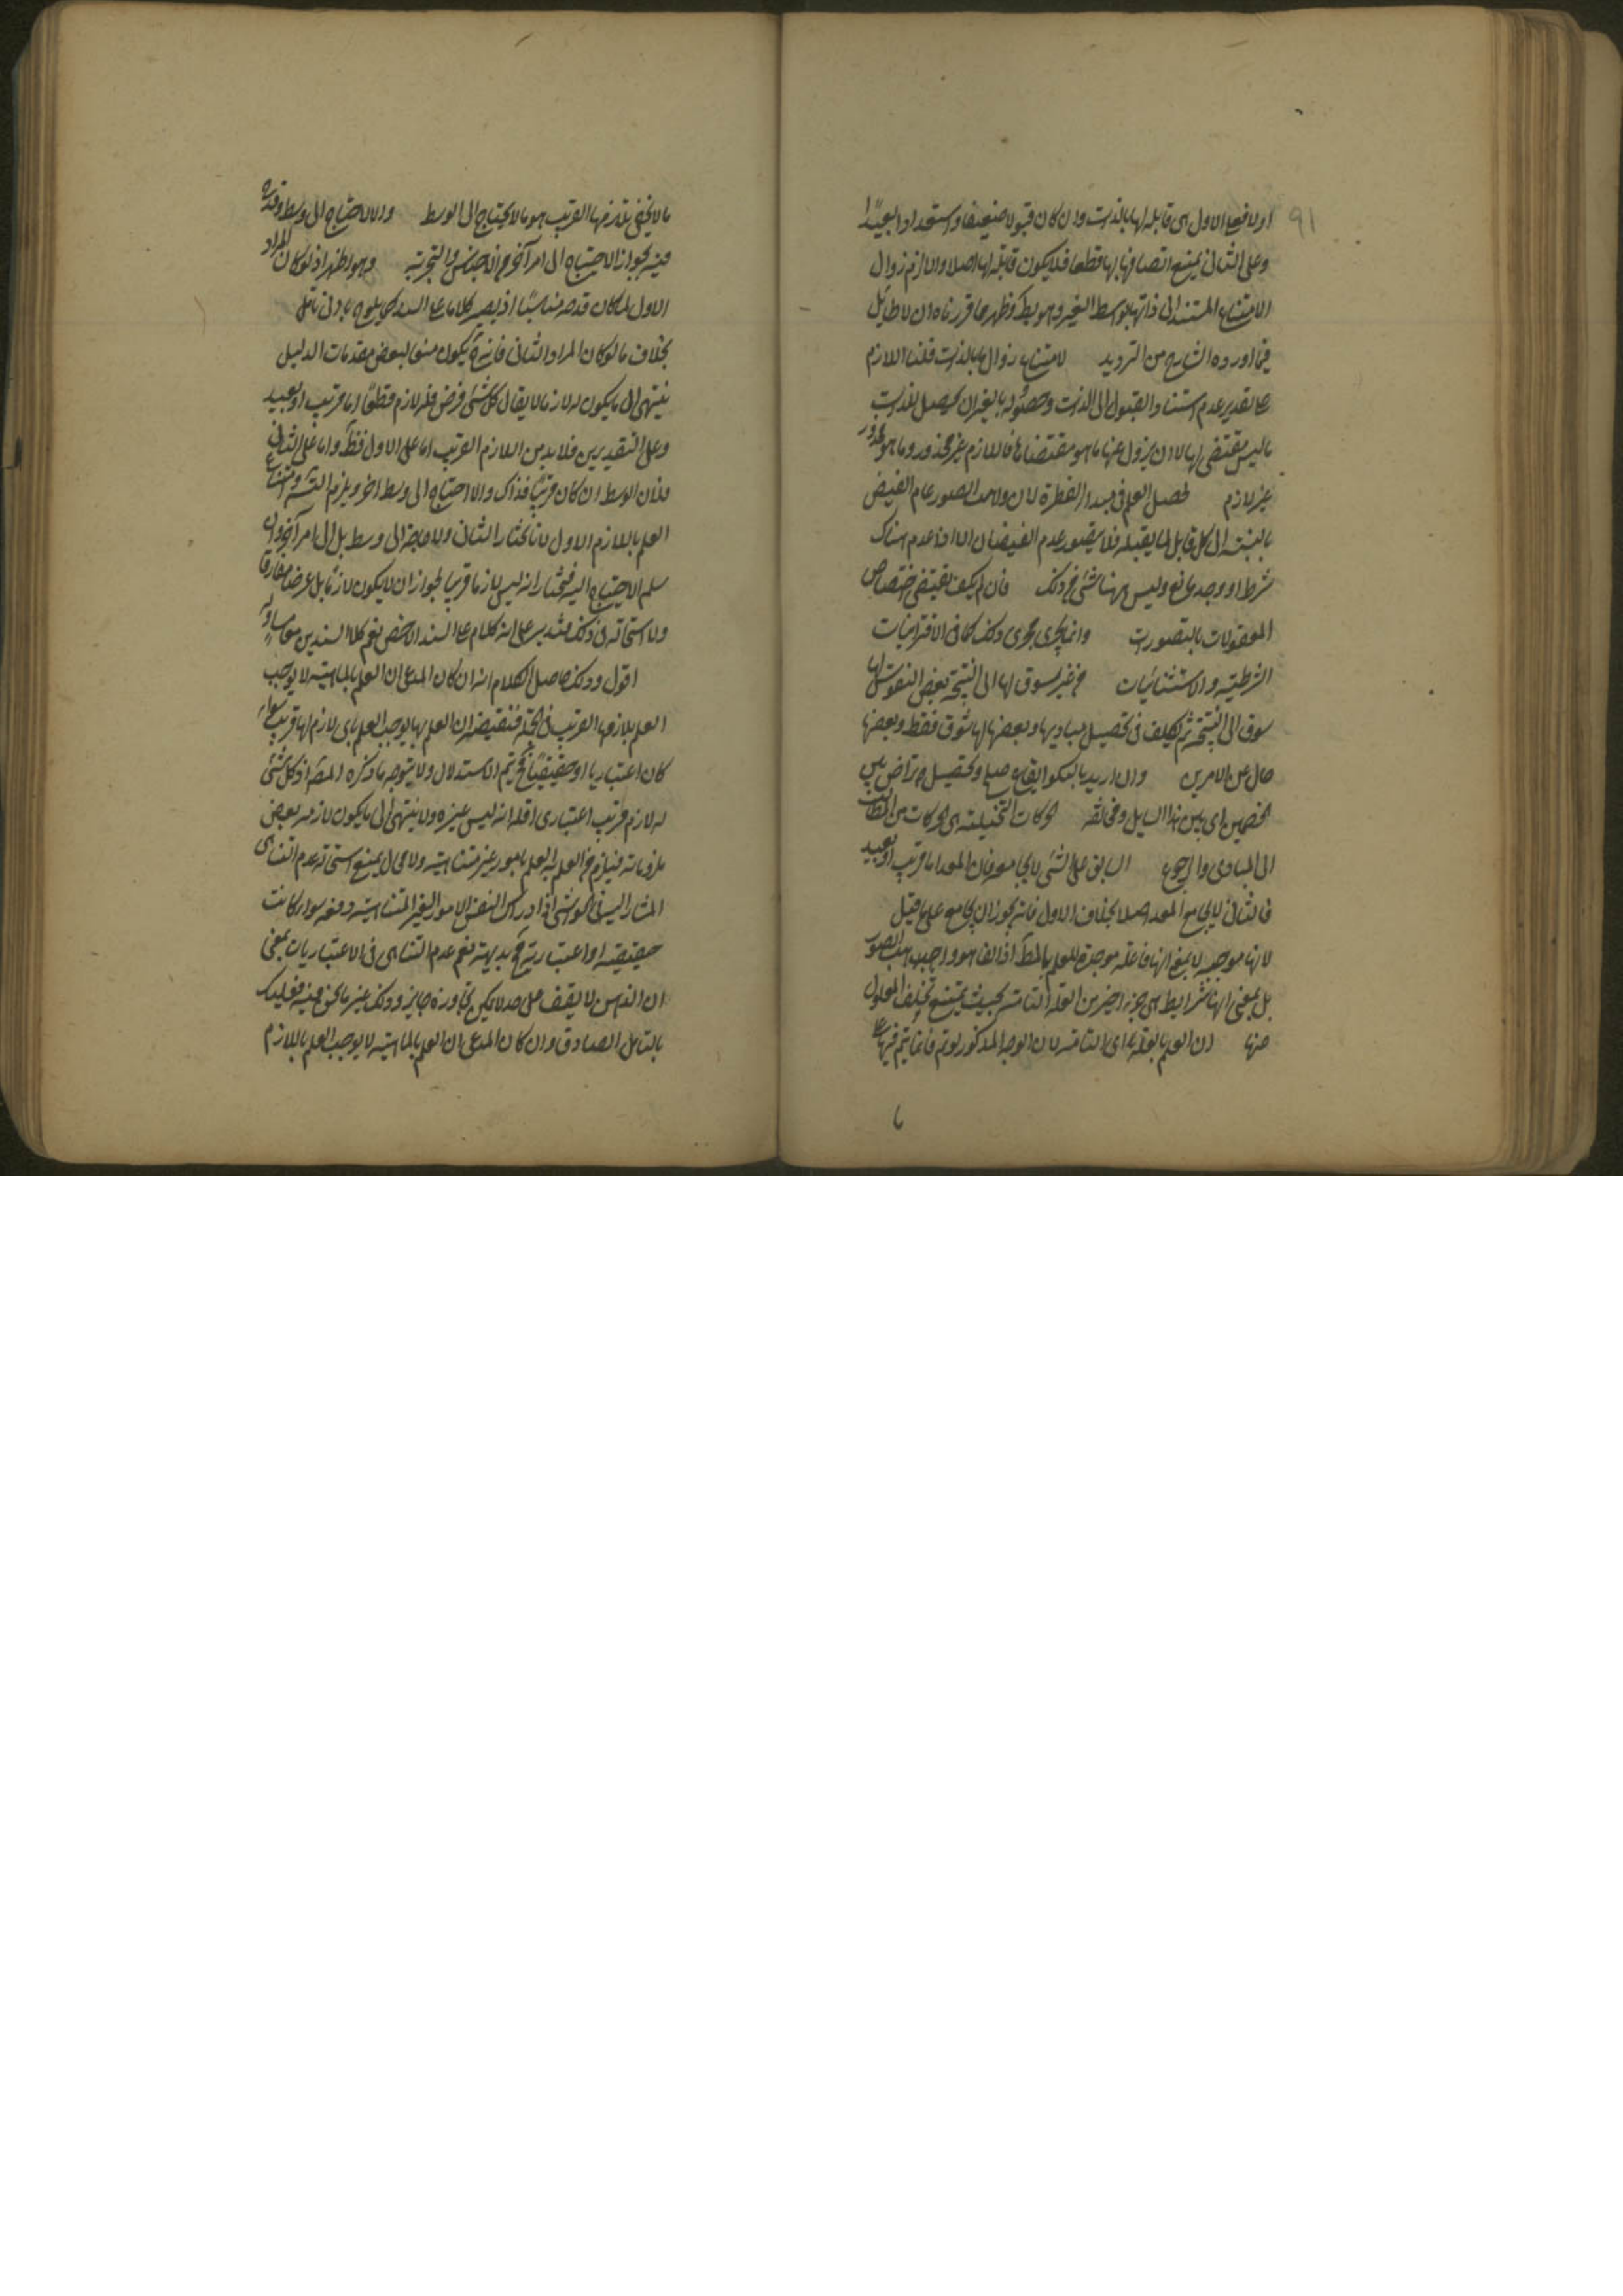 91
اولا فعلى الاول هى قابلة لها بالذات وان كان قبولا ضعيفا واستعدادا بعيدا
وعلى الثانى يمتنع اتصافها بها قطعا فلا يكون قابلة لها اصلا واللازم زوال
الامتناع المستند الى ذاتها بتوسط الغير وهو بط وظهر مما قررناه ان لا طايل
فيما اورده الشارح من الترديد لامتناع زوال ما بالذات قلنا اللازم
على تقدير عدم استناد القبول الى الذات وحصوله بالغير ان يحصل للذات
ما ليس مقتضى لها لا ان يزول عنها ما هو مقتضاها فاللازم غير محذور وما هو محذور
غير لازم لحصل العلم فى مبدا الفطرة لان واهب الصور عام الفيض
بالنسبة الى كل قابل لما يقبله فلا يتصور عدم الفيضان الا اذا عدم هناك
شرط او وجد مانع وليس ههنا شئ من ذلك فان لم يكف تقتضى اختصاص
المعقولات بالتصورات وانما يجرى مجرى ذلك كما فى الاقترانيات
الشرطية والاستثنائيات من غير سوق لها الى النتيجة بعض النفوس لها
سوق الى النتيجة ثم تكلف فى تحصيل مباديها وبعضها لها شوق فقط وبعضها
خال عن الامرين وان اريد بالسكو ايقاع صلح وتحصيل تراض بين
الخصمين اى بين هذا السايل ومخالفه حركات التخيلية اى الحركات من المطالب
الى المبادى والرجوع السابق على الشئ لا يجامعه فان المعد اما قريب او بعيد
فالثانى لا يجامع المعد اصلا بخلاف الاول فانه يجوز ان يجامع على ما قيل
لانها موجبة لا بمعنى انها فاعلة موجدة للعلم بالمط اذ الفاعل هو واهب الصور
بل بمعنى انها شرايط هى جزء اخير من العلة التامة بحيث يمتنع تخلف المعلول
عنها ان العلم بالعلة اى التامة لان الوجه المذكور لو تم فانما يتم فيها
ما لا يخفى يلزمها القريب هو ما لا يحتاج الى الوسط والا لاحتاج الى وسط وقد مر
فيه بجواز الاحتياج الى امر آخر من الاحساس والتجربة وهو اظهر اذ لو كان المراد
الاول لما كان قدحه مناسبا اذ يصير كلاما على السند كما يلوح بادنى تامل
بخلاف ما لو كان المراد الثانى فانه يكون منعا لبعض مقدمات الدليل
ينتهى الى ما يكون له لازم لا يقال كل شئ فرض فله لازم قطعا اما قريب او بعيد
وعلى التقديرين فلا بد من اللازم القريب اما على الاول فظ واما على الثانى
فلان الوسط ان كان قريبا فذاك والا احتاج الى وسط اخر ويلزم التس وامتناع
العلم باللازم الاول لانا نختار الثانى ولا حاجة الى وسط بل الى امر آخر وان
سلم الاحتياج اليه فنختار انه ليس لازما قريبا لجواز ان لا يكون لازما بل عرضا مفارقا
ولا استحالة فى ذلك فتدبر على انه كلام على السند الاخص نعم كلا السندين معا مساو له
اقول وذلك حاصل الكلام انه ان كان المدعى ان العلم بالماهية لا يوجب
العلم بلازمها القريب فى الجملة فنقيضه ان العلم بها يوجب العلم باى لازم لها قريب سواء
كان اعتباريا او حقيقيا فح يتم الاستدلال ولا يتوجه ما ذكره المص اذ كل شئ
له لازم قريب اعتبارى اقله انه ليس غيره ولا ينتهى الى ما يكون لازمه بعض
ملزوماته فيلزم من العلم به العلم بامور غير متناهية ولا مجال يمنع استحالة عدم التناهى
المشار اليه فى الحواشى اذ ادراك النفس الامور الغير المتناهية دفعة سواء كانت
حقيقية او اعتبارية مح بديهة نعم عدم التناهى فى الاعتباريات بمعنى
ان الذهن لا يقف على حد لا يمكن تجاوزه جايز وذلك غير ما نحن فيه فعليك
بالتامل الصادق وان كان المدعى ان العلم بالماهية لا يوجب العلم باللازم